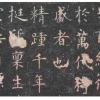 於萬代
盛者也
精踵千年
挺稟生